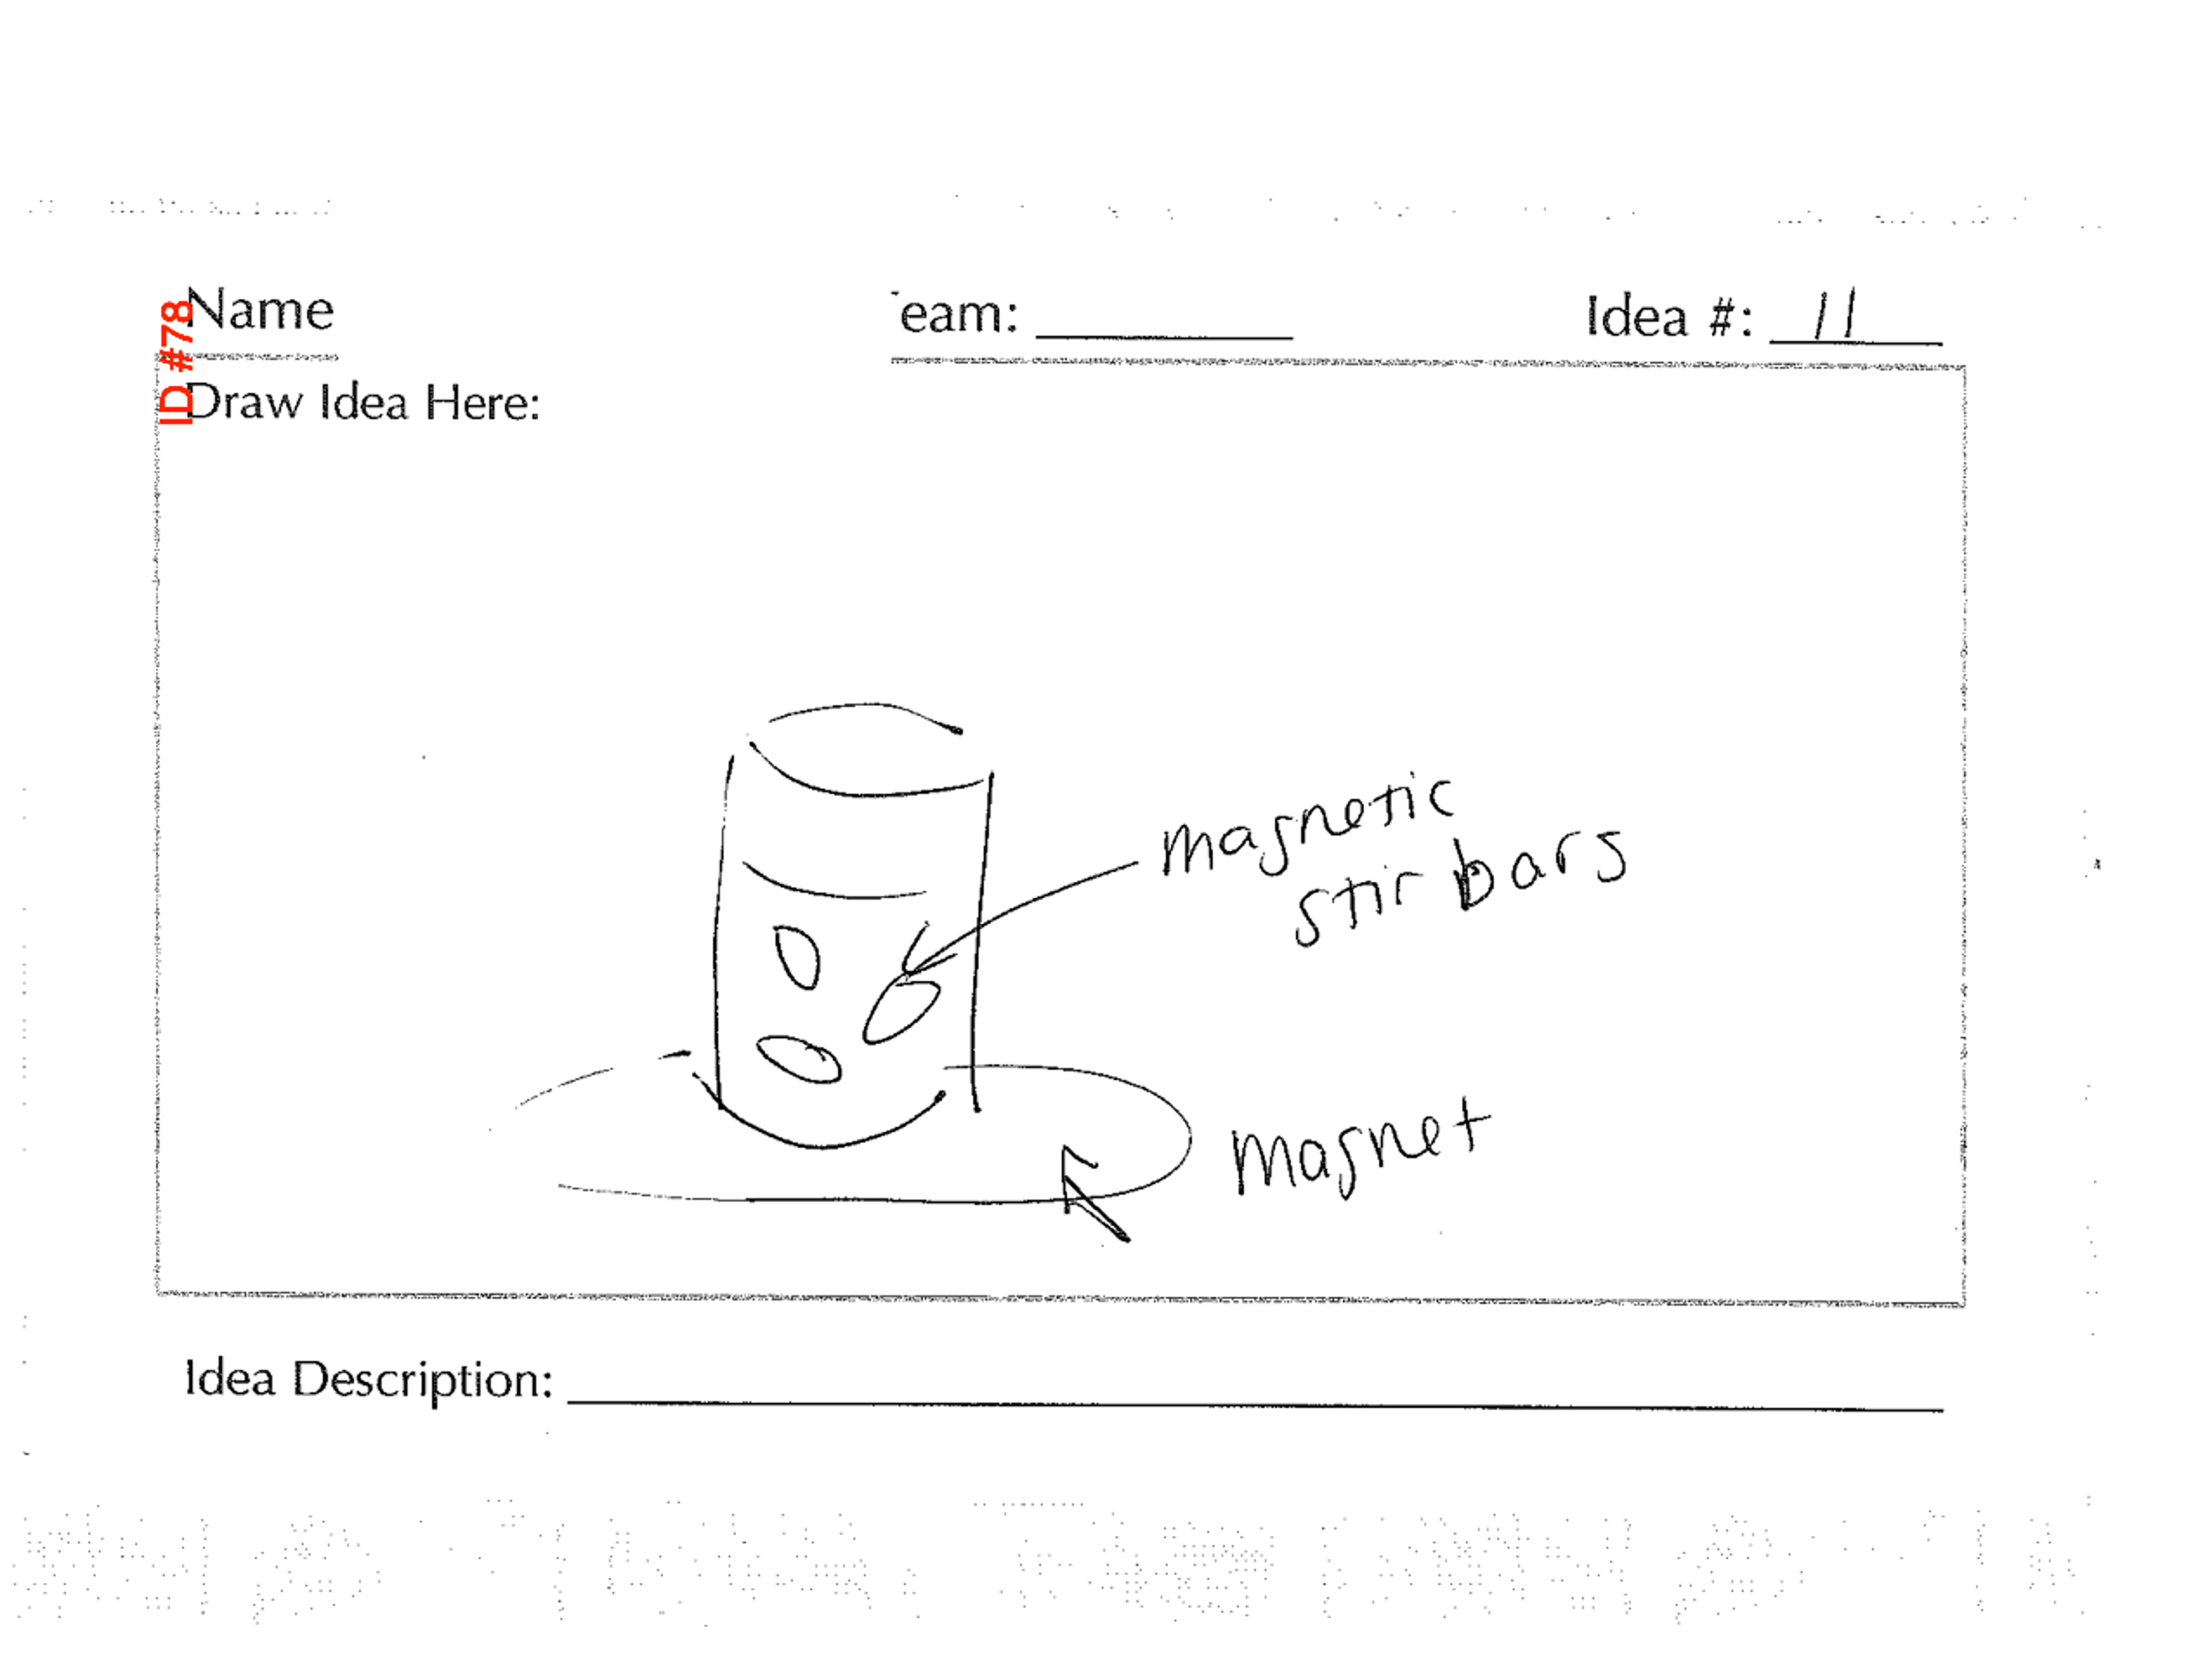 ID #78
Name
eam:
Idea #: 11
Draw Idea Here:
magnetic
stir bars
magnet
Idea Description: